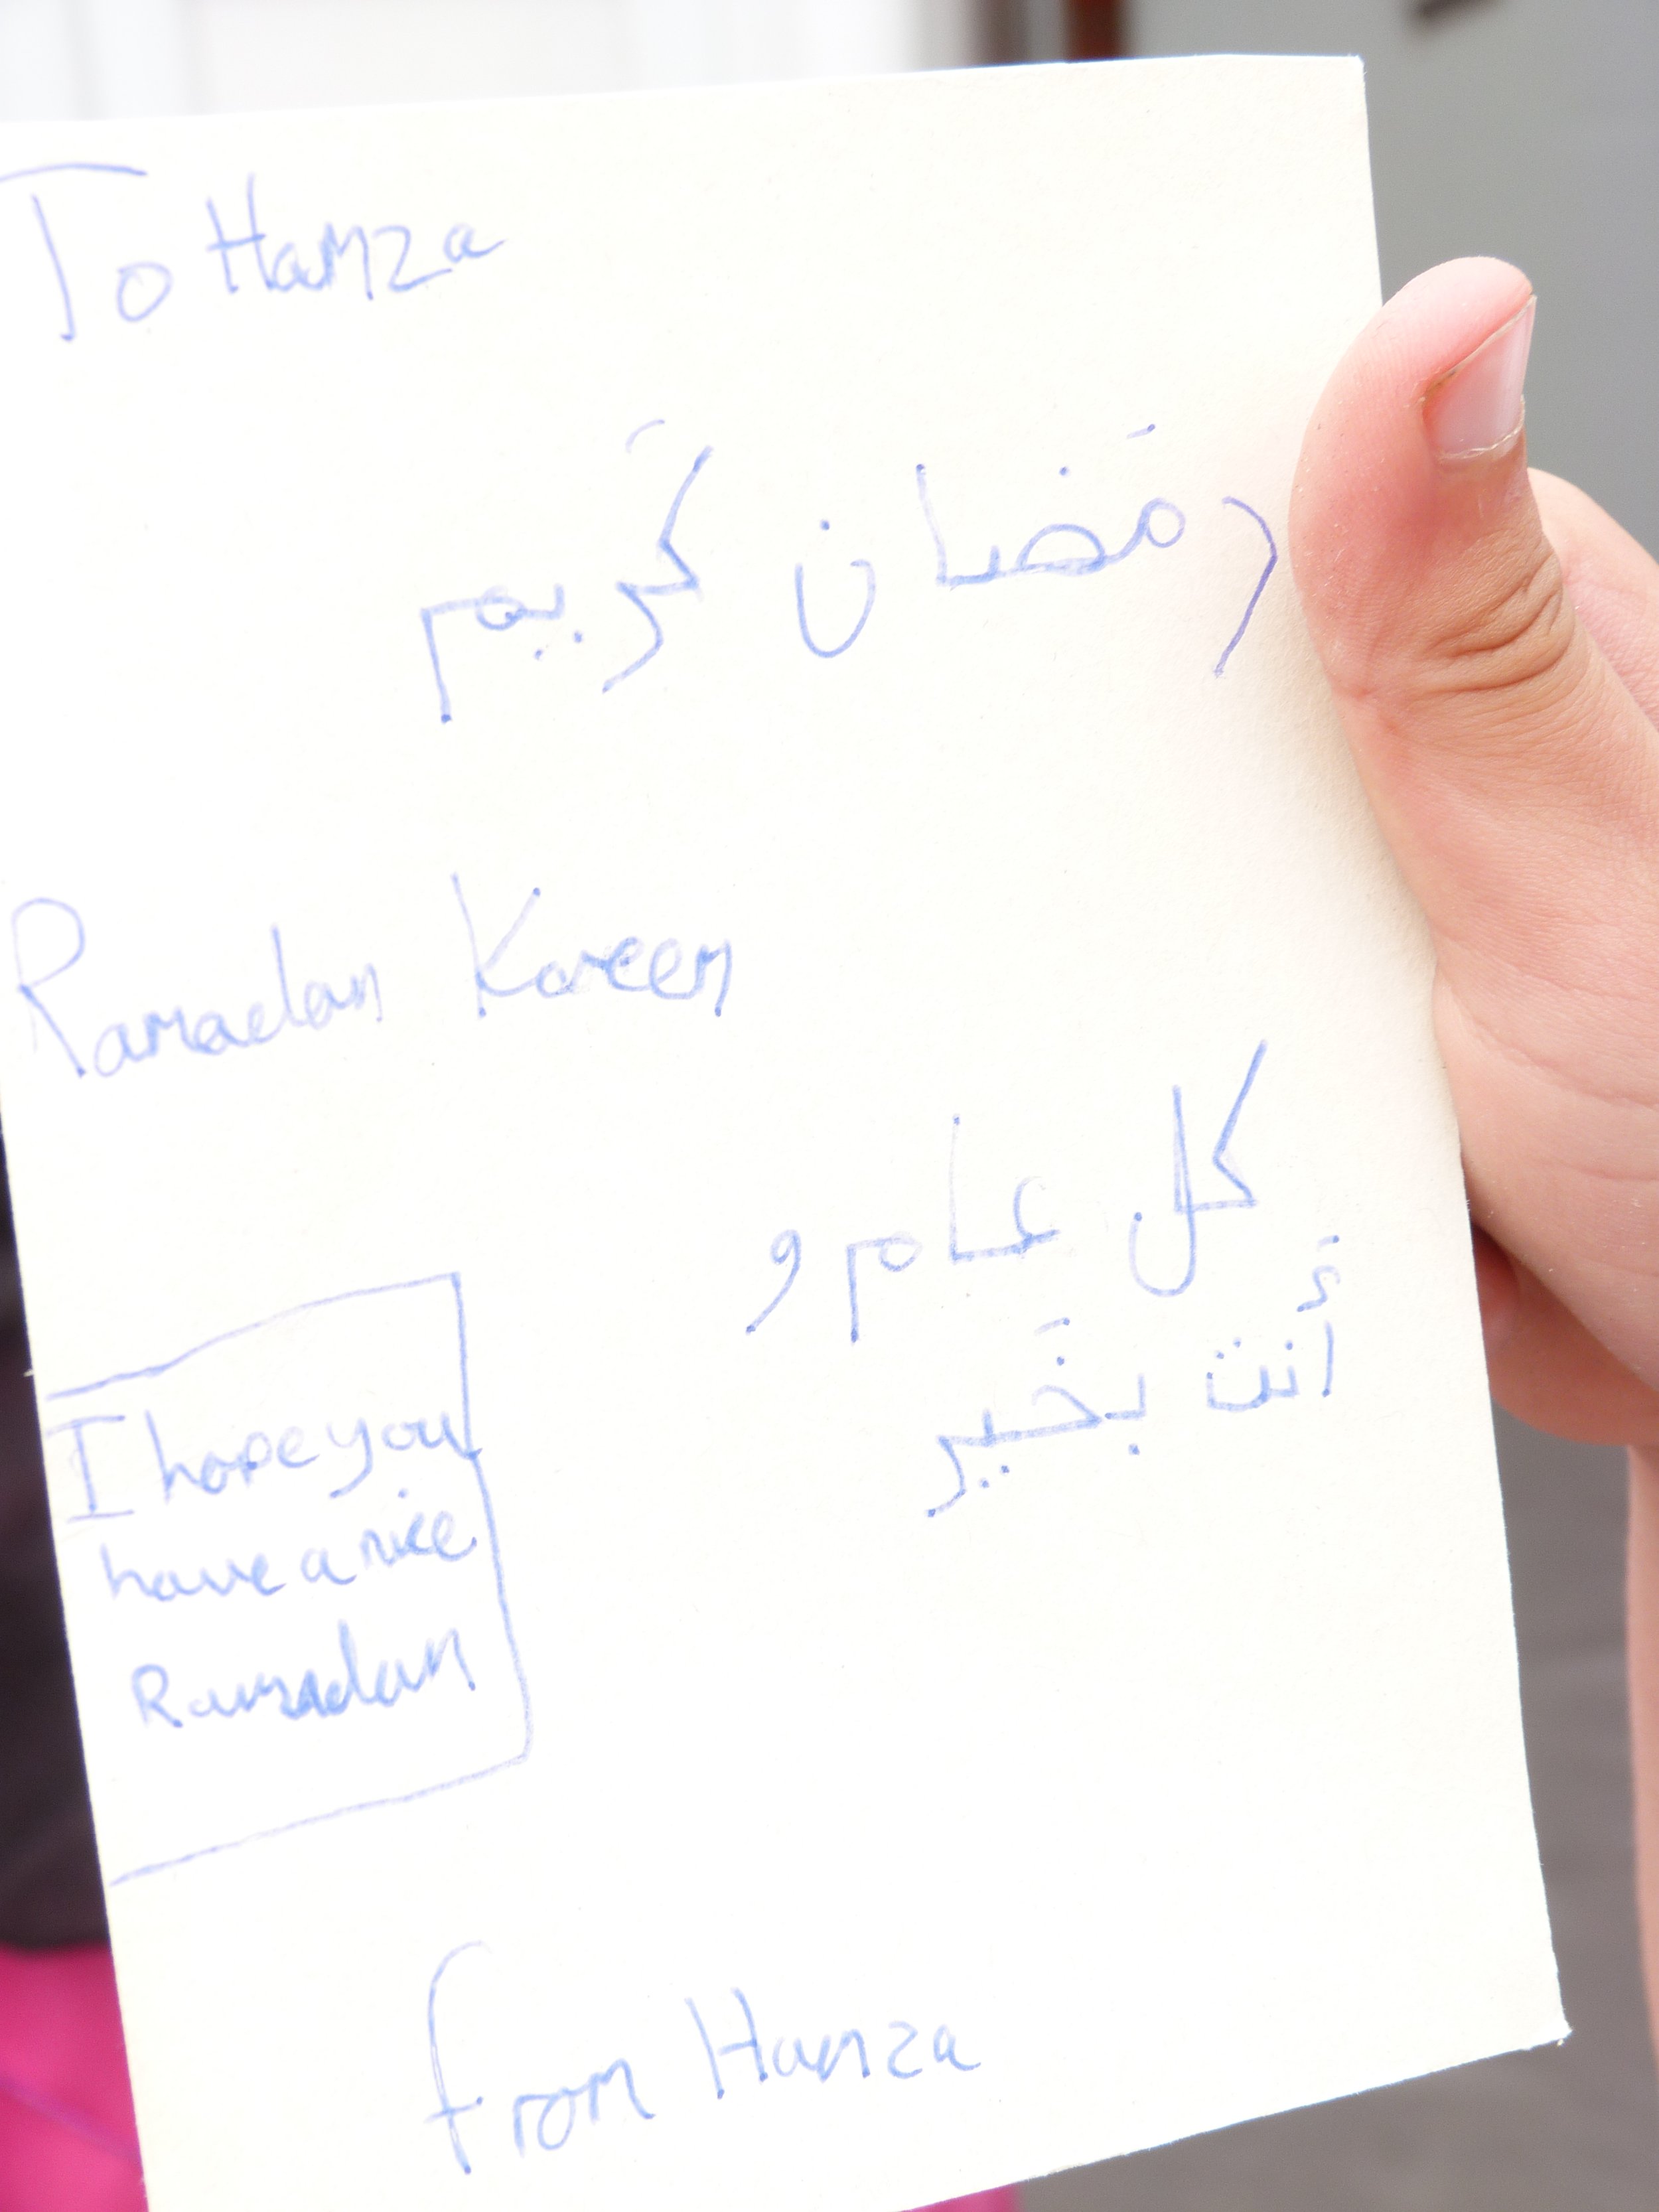 To Hamza
رمَضان كَريم
Ramadan Kareem
كل عام و
أَنت بخَير
I hope you
have a nice
Ramadan
from Hamza